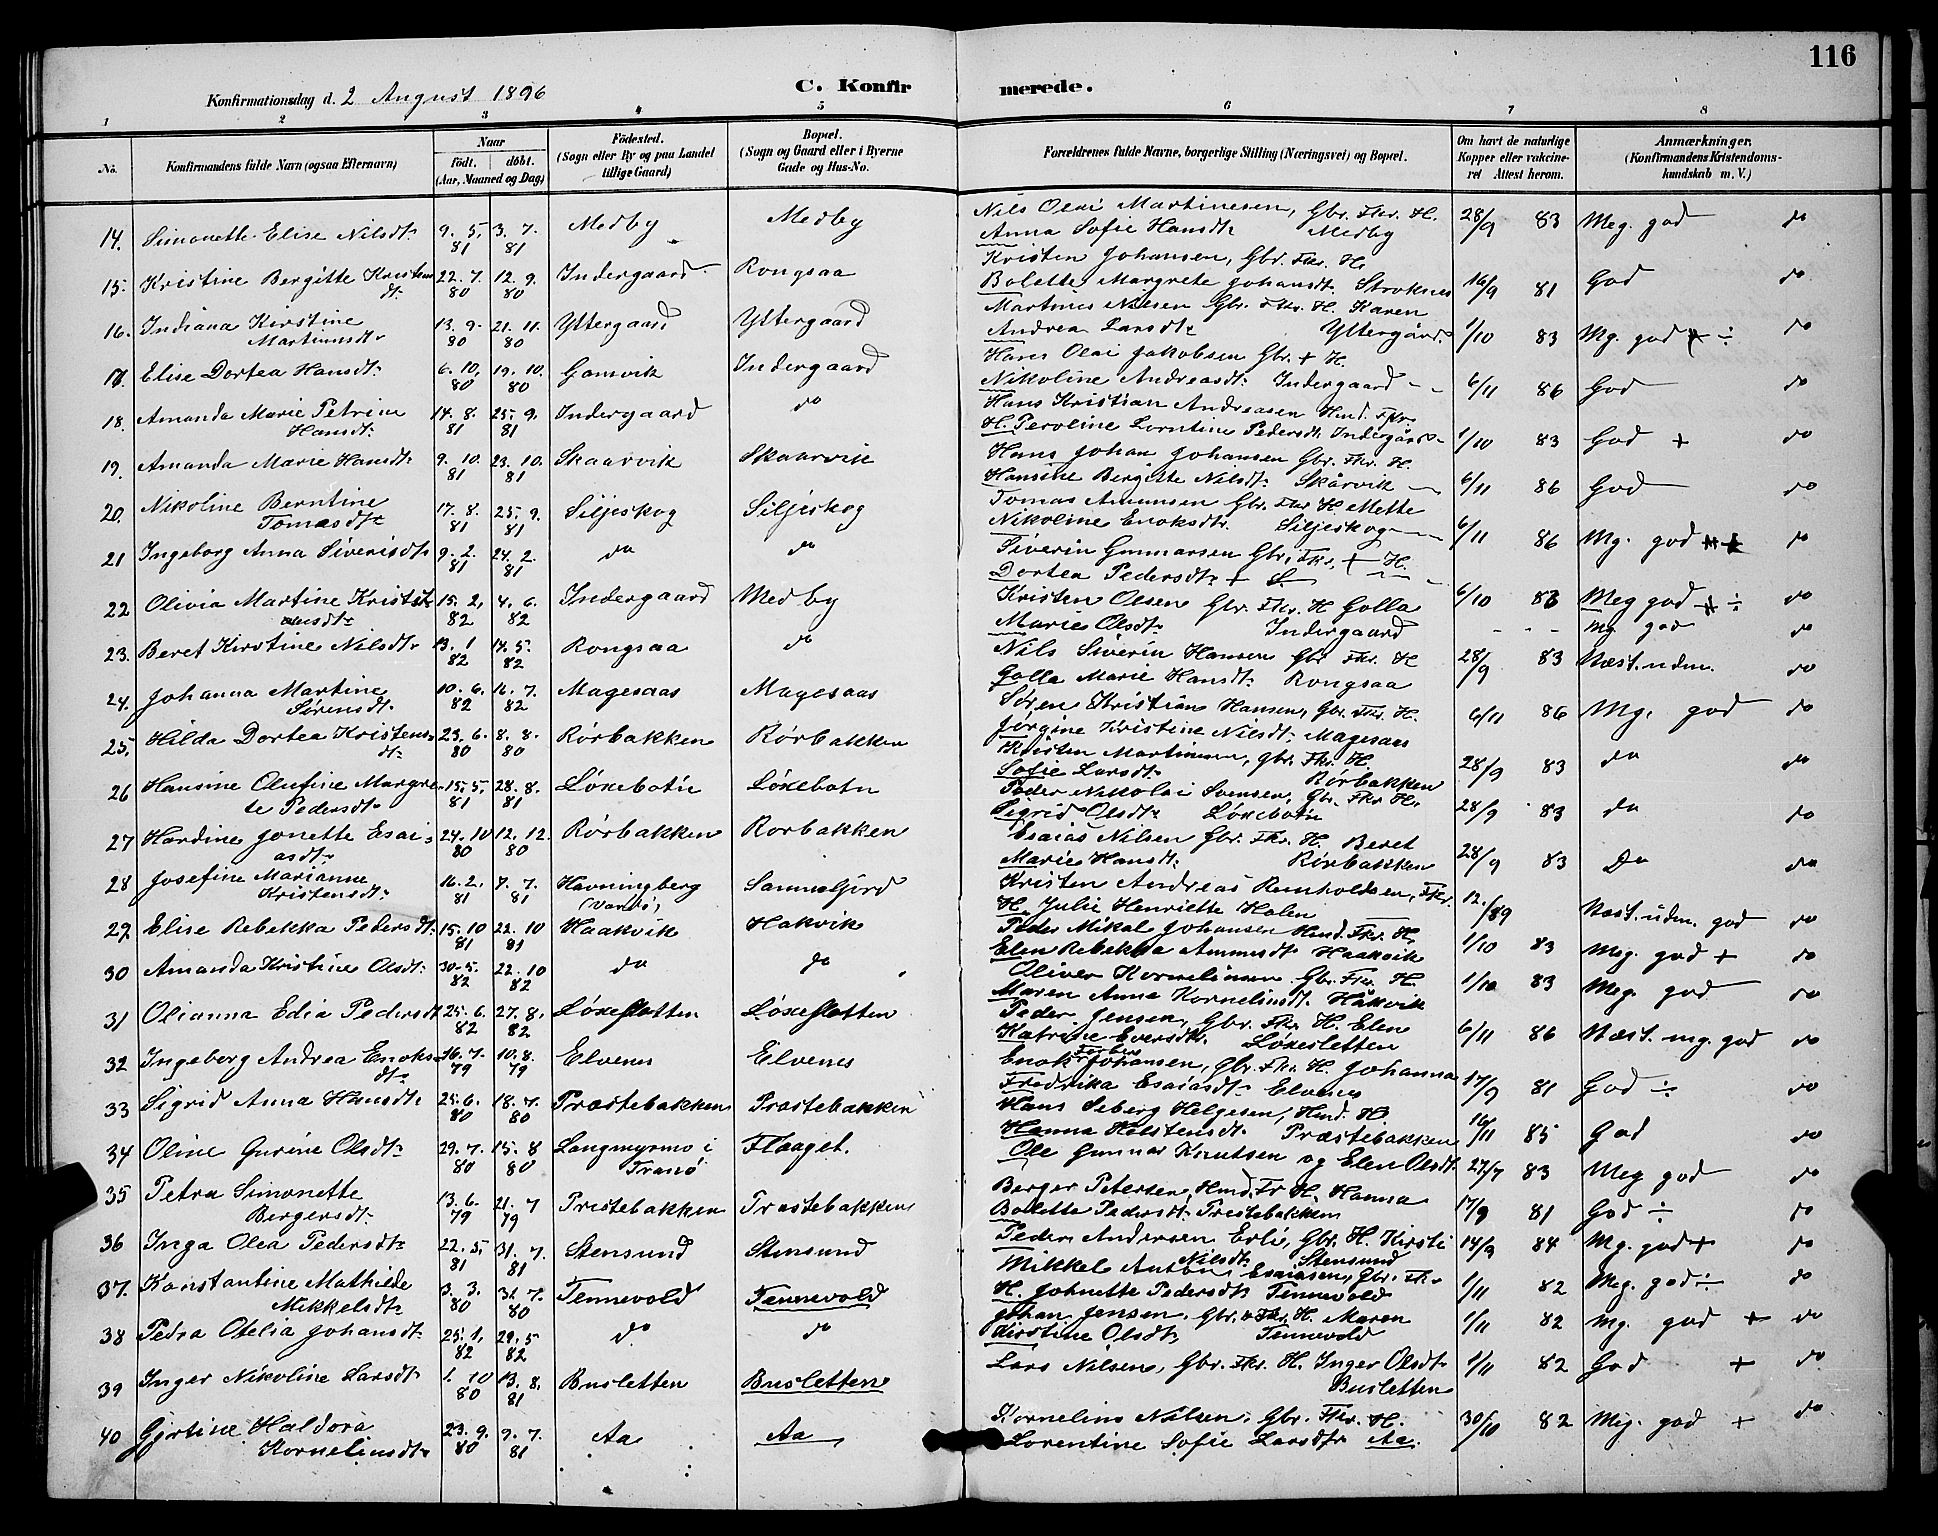 116
Konfirmationsdag d. 2 August 1896
C. Konfirmerede.
1 2 3 4 5 6 7 8
No. Konfirmandens fulde Navn (ogsaa Efternavn) Naar født. døbt. (Aar, Maaned og Dag) Fødested. (Sogn eller By og paa Landet tillige Gaard) Bopæl. (Sogn og Gaard eller i Byerne Gade og Hus-No. Forældrenes fulde Navne, borgerlige Stilling (Næringsvei) og Bopæl. Om havt de naturlige Kopper eller vakcineret Attest herom. Anmærkninger. (Konfirmandens Kristendomskundskab m. V.)
14. Simonette Elise Nilsdt. 9. 5. 81 3. 7. 81 Medby Medby Nils Olai Martinesen, Gbr. Fkr. H. Anna Sofie Hansdt. Medby 28/9 83 Meg. god do
15. Kristine Bergitte Kristensdt. 22. 7. 80 12. 9. 80 Indergaard Rongsaa Kristen Johansen, Gbr. Fkr. H. Bolette Margrete Johansdt. 16/9 81 God do
16. Indiana Kirstine 13. 9. 80 21. 11. 80 Yttergaard Yttergaard Martines Nilsen Gbr. Fkr. H. Karen Andrea Larsdt. Yttergård 1/10 83 Mg. god ÷ do
17. Elise Dortea Hansdt. 6. 10. 80 19. 10. 80 Gamvik Indergaard Hans Olai Jakobsen Gbr. + H. Nikoline Andreasdt. Indergaard 6/11 86 God do
18. Amanda Marie Petrine Hansdt. 14. 8. 81 25. 9. 81 Indergaard do Hans Kristian Andreasen Hmd. Fkr. H. Peroline Lorntine Pedersdt. Indergård 1/10 83 God + do
19. Amanda Marie Hansdt. 9. 10. 81 23. 10. 81 Skaarvik Skaarvik Hans Johan Johansen Gbr. Fkr. H. Hansine Bergitte Nilsdt. Skårvik 6/11 86 God do
20. Nikoline Berntine Tomasdt. 17. 8. 81 25. 9. 81 Siljeskog Siljeskog Tomas Amunsen Gbr. Fkr. H. Mette Nikoline Enoksdtr. Siljeskog 6/11 86 Mg. god do
21 Ingeborg Anna Siverisdt. 9. 2. 81 24. 2. 81 do do Siverin Gunnarsen Gbr. Fkr. + H. Dortea Pedersdt. +
22 Olivia Martine Kristensdt. 15. 2. 82 4. 6. 82 Indergaard Medby Kristen Olsen Gbr. Fkr. H Golla Marie Olsdt. Indergaard 6/10 83 Meg god ÷ do
23. Beret Kirstine Nilsdt. 13. 1 82 14. 5. 82 Rongsaa do Nils Siverin Hansen Gbr Fkr. H Golla Marie Hansdt. Rongsaa 28/9 83 Mg god Næst. udm. do
24. Johanna Martine Sørensdt. 10. 6. 82 16. 7. 82 Magesaas Magesaas Søren Kristian Hansen, Gbr. Fkr. H. Jørgine Kristine Nilsdt. Magesaas 6/11 86 Mg. god do
25. Hilda Dortea Kristensdt. 23. 6. 80 8. 8. 80 Rørbakken Rørbakken Kristen Martinesen, Gbr. Fkr. H. Sofie Larsdt. Rørbakken 28/9 83 do do
26 Hansine Olufine Margrete Pedersdt. 15. 5. 81 28. 8. 81 Løxebotn Løxebotn Peder Nikolai Svensen, Gbr. Fkr H. Sigrid Olsdt. Løxebotn 28/9 83 do do
27 Hardine Jonette Esaiasdt. 24. 10 80 12. 12. 80 Rørbakken Rorbakken Esaias Nilsen Gbr. Fkr. H. Beret Marie Hansdt. Rørbakken 28/9 83 Do do
28 Josefine Marianne Kristensdt. 16. 2. 81 7. 7. 81 Havningberg (Vardø) Kristen Andreas Remholdsen, Fkr. H. Julie Henriette Holm 12. /89 Næst. udm. god do
29 Elise Rebekka Pedersdt. 15. 10 81 22. 10 81 Haakvik Hakvik Peder Mikal Johansen Hmd. Fkr. H. Elen Rebekka Amunsdt Haakvik 1/10 83 Meg. god + do
30 Amanda Kristine Olsdt. 30. 5. 82 22. 10 82 do do Oliver Kornelinsen Gbr. Fkr. H Maren Anna Kornelinsdt. Håkvik 1/10 83 Meg. god do
31 Olianna Edia Pedersdt 25. 6. 82 27. 8. 82 Løxesletten Løxesletten Peder Jensen, Gbr. Fkr. H. Elen Katrine Eversdt. Løxesletten 6/11 86 Næst. mg. god do
32 Ingeborg Andrea Enoksdt. 16. 7. 79 10. 8. 79 Elvenes Elvenes Enok Johansen, Gbr. Fkr. H. Johanna Fredrika Esaiasdt. Elvenes 17/9 81 God ÷ do
33 Sigrid Anna Hansdt. 25. 6. 80 18. 7. 80 Præstebakken Præstebakken Hans Seberg Helgesen, Hmd. H. Hanna Holstensdt. Præstebakken 16/11 85 God do
34 Oline Gurine Olsdt. 29. 7. 80 15. 8 80 Langmyrmo i Tranø Flaaget. Ole Gunnar Knutsen og Elen Olsdt 27/7 83 Meg god do
35 Petra Simonette Bergersdt. 13. 6. 79 21. 7 79 Præstebakken Præstebakken Berger Petersen, Hmd. Fr H. Hanna Bolette Pedersdt. Prestebakken 17/9 81 God ÷ do
36 Inga Olea Pedersdt. 22. 5. 81 31. 7. 81 Stensund Stensund Peder Andersen Gbr. H. Kirsti Nilsdt. Stensund 14/9 84 Mg. god + do
37. Konstantine Mathilde Mikkelsdt. 3. 3. 80 31. 7. 80 Tennevold Tennevold Mikkel Anton Esaiasen, Gbr. Fkr. H. Johnette Pedersdt. Tennevold 1/11 82 Meg. god ÷ do
38 Pedra Otelia Johansdt. 25. 1. 82 29. 5 82 do do Johan Jensen, Gbr. Fkr. H. Maren Kirstine Olsdt. Tennevold 1/11 82 Mg. god + do
39 Inger Nikoline Larsdt. 1. 10 80 13. 8. 81 Busletten Busletten Lars Nilsen, Gbr. Fkr. H. Inger Olsdt. Busletten 1/11 82 God + do
40 Gjertine Haldora Kornelinsdt. 23. 9. 80 9. 7. 81 Aa Aa Kornelius Nilsen, Gbr. Fkr. H. Lorentine Sofie Larsdtr Aa. 30/10 82 Mg. god + do